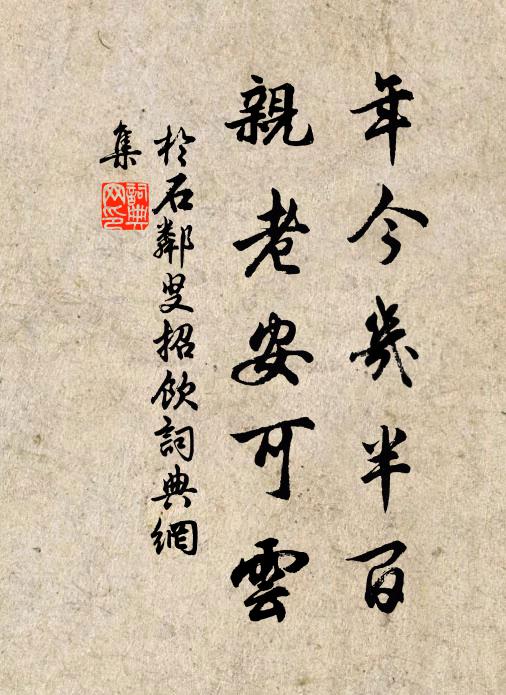 年今幾半百
親老安可雲
於石鄰叟招飲詞典網
集
詞典網印